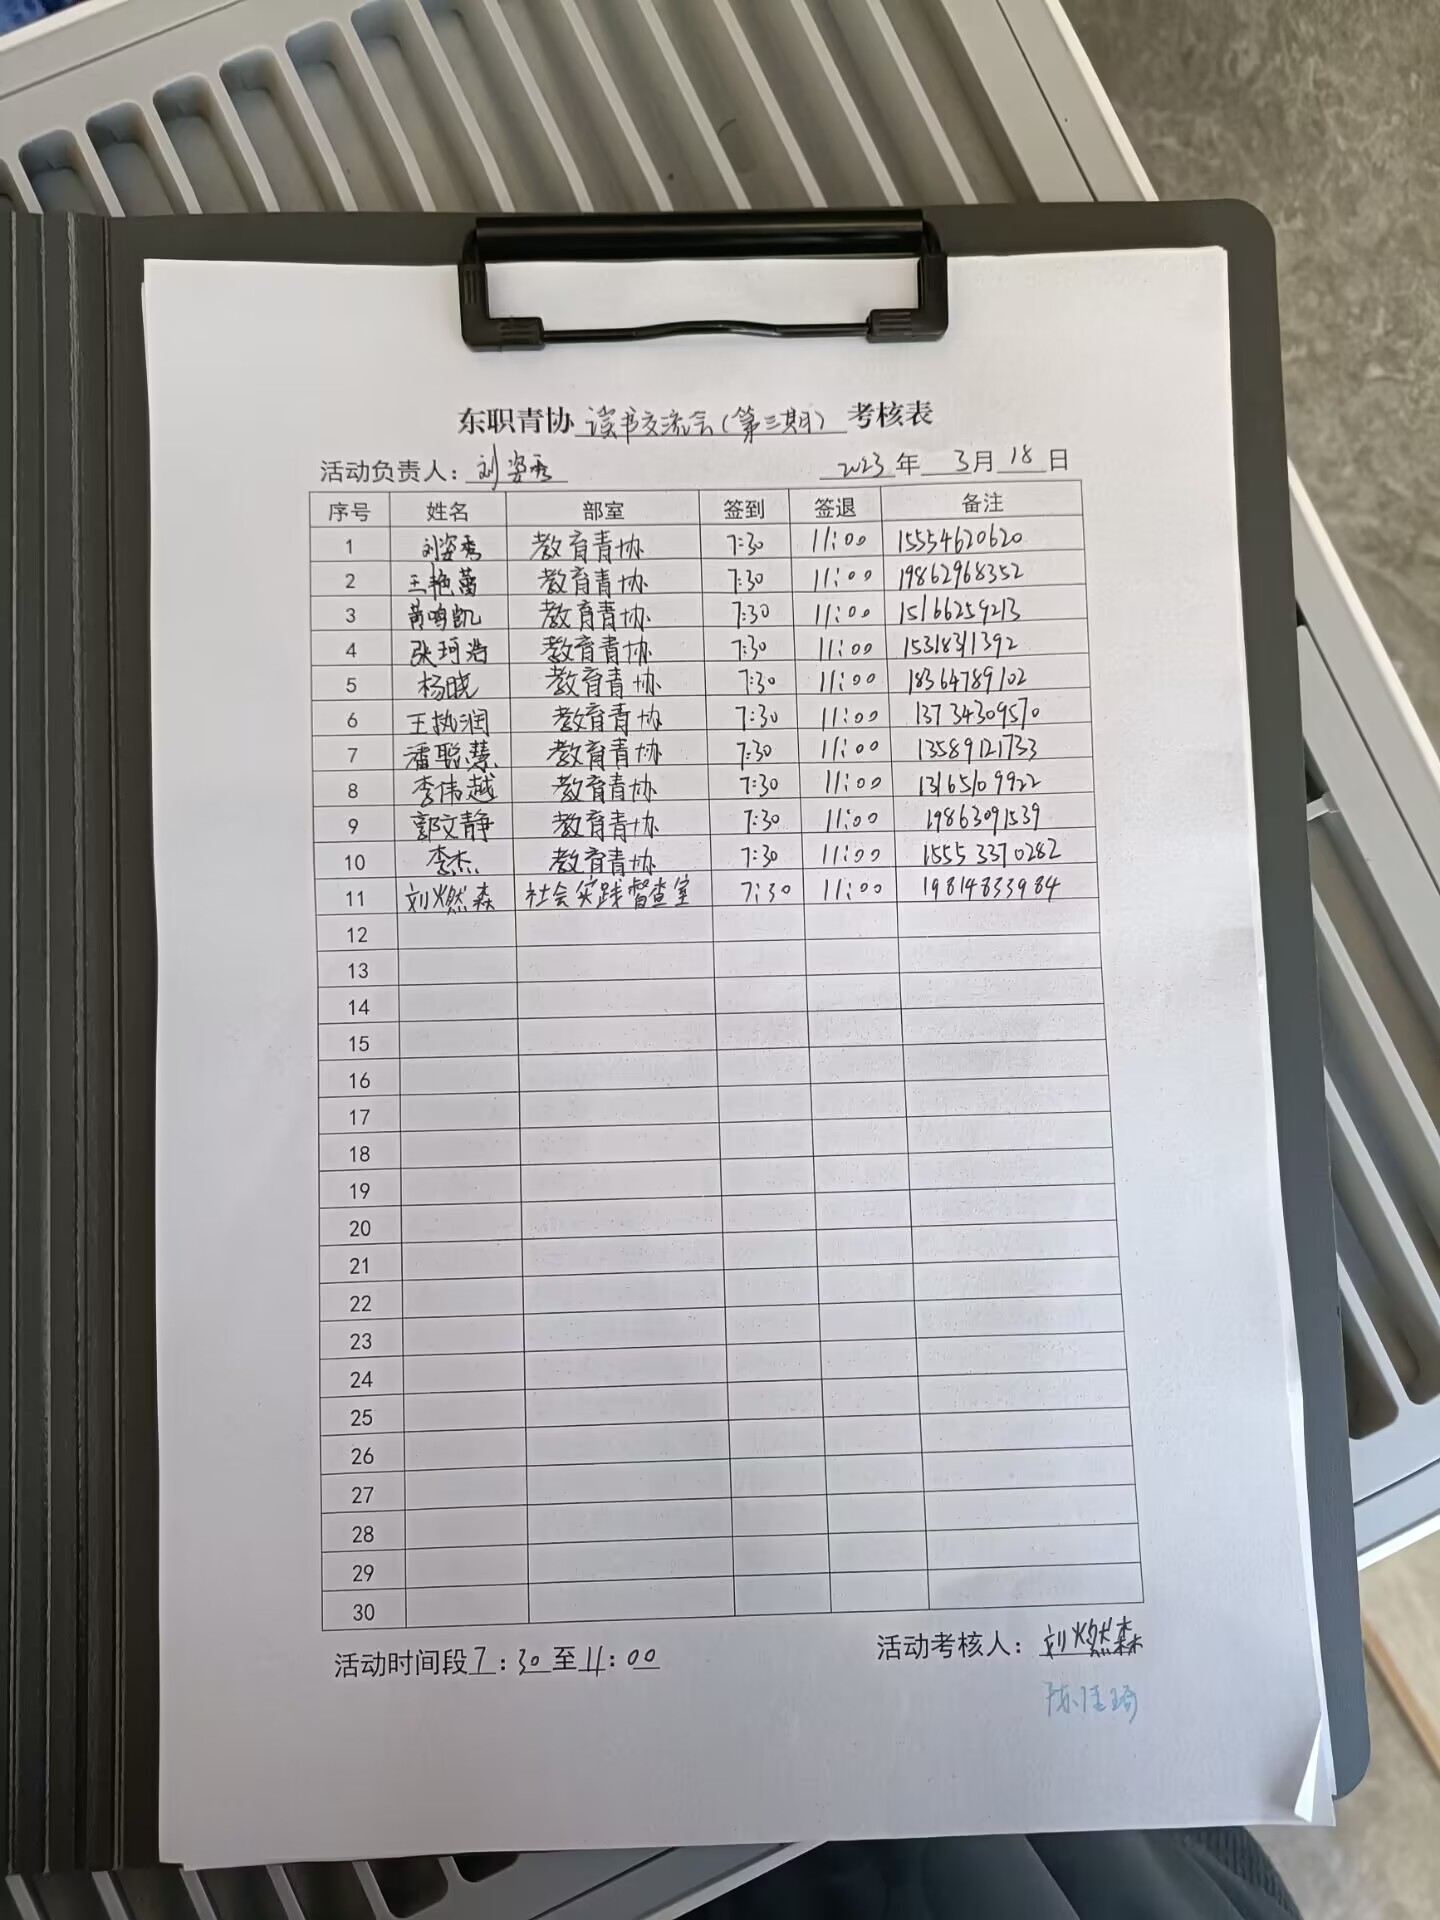 东职青协 读书交流会(第三期) 考核表
活动负责人: 刘姿秀 2023 年 3 月 18 日
序号 姓名 部室 签到 签退 备注
1 刘姿秀 教育青协 7:30 11:00 15554620620
2 王艳蕾 教育青协 7:30 11:00 19862968352
3 黄鸣凯 教育青协 7:30 11:00 15166259213
4 张珂浩 教育青协 7:30 11:00 15318311392
5 杨晓 教育青协 7:30 11:00 18364789102
6 王执润 教育青协 7:30 11:00 13734309570
7 潘聪慧 教育青协 7:30 11:00 13589121733
8 李伟越 教育青协 7:30 11:00 13165109922
9 郭文静 教育青协 7:30 11:00 19863091539
10 李杰 教育青协 7:30 11:00 15553370282
11 刘燃森 社会实践督查室 7:30 11:00 19814833984
12
13
14
15
16
17
18
19
20
21
22
23
24
25
26
27
28
29
30
活动时间段 7:30 至 11:00 活动考核人: 刘燃森
陈佳琦